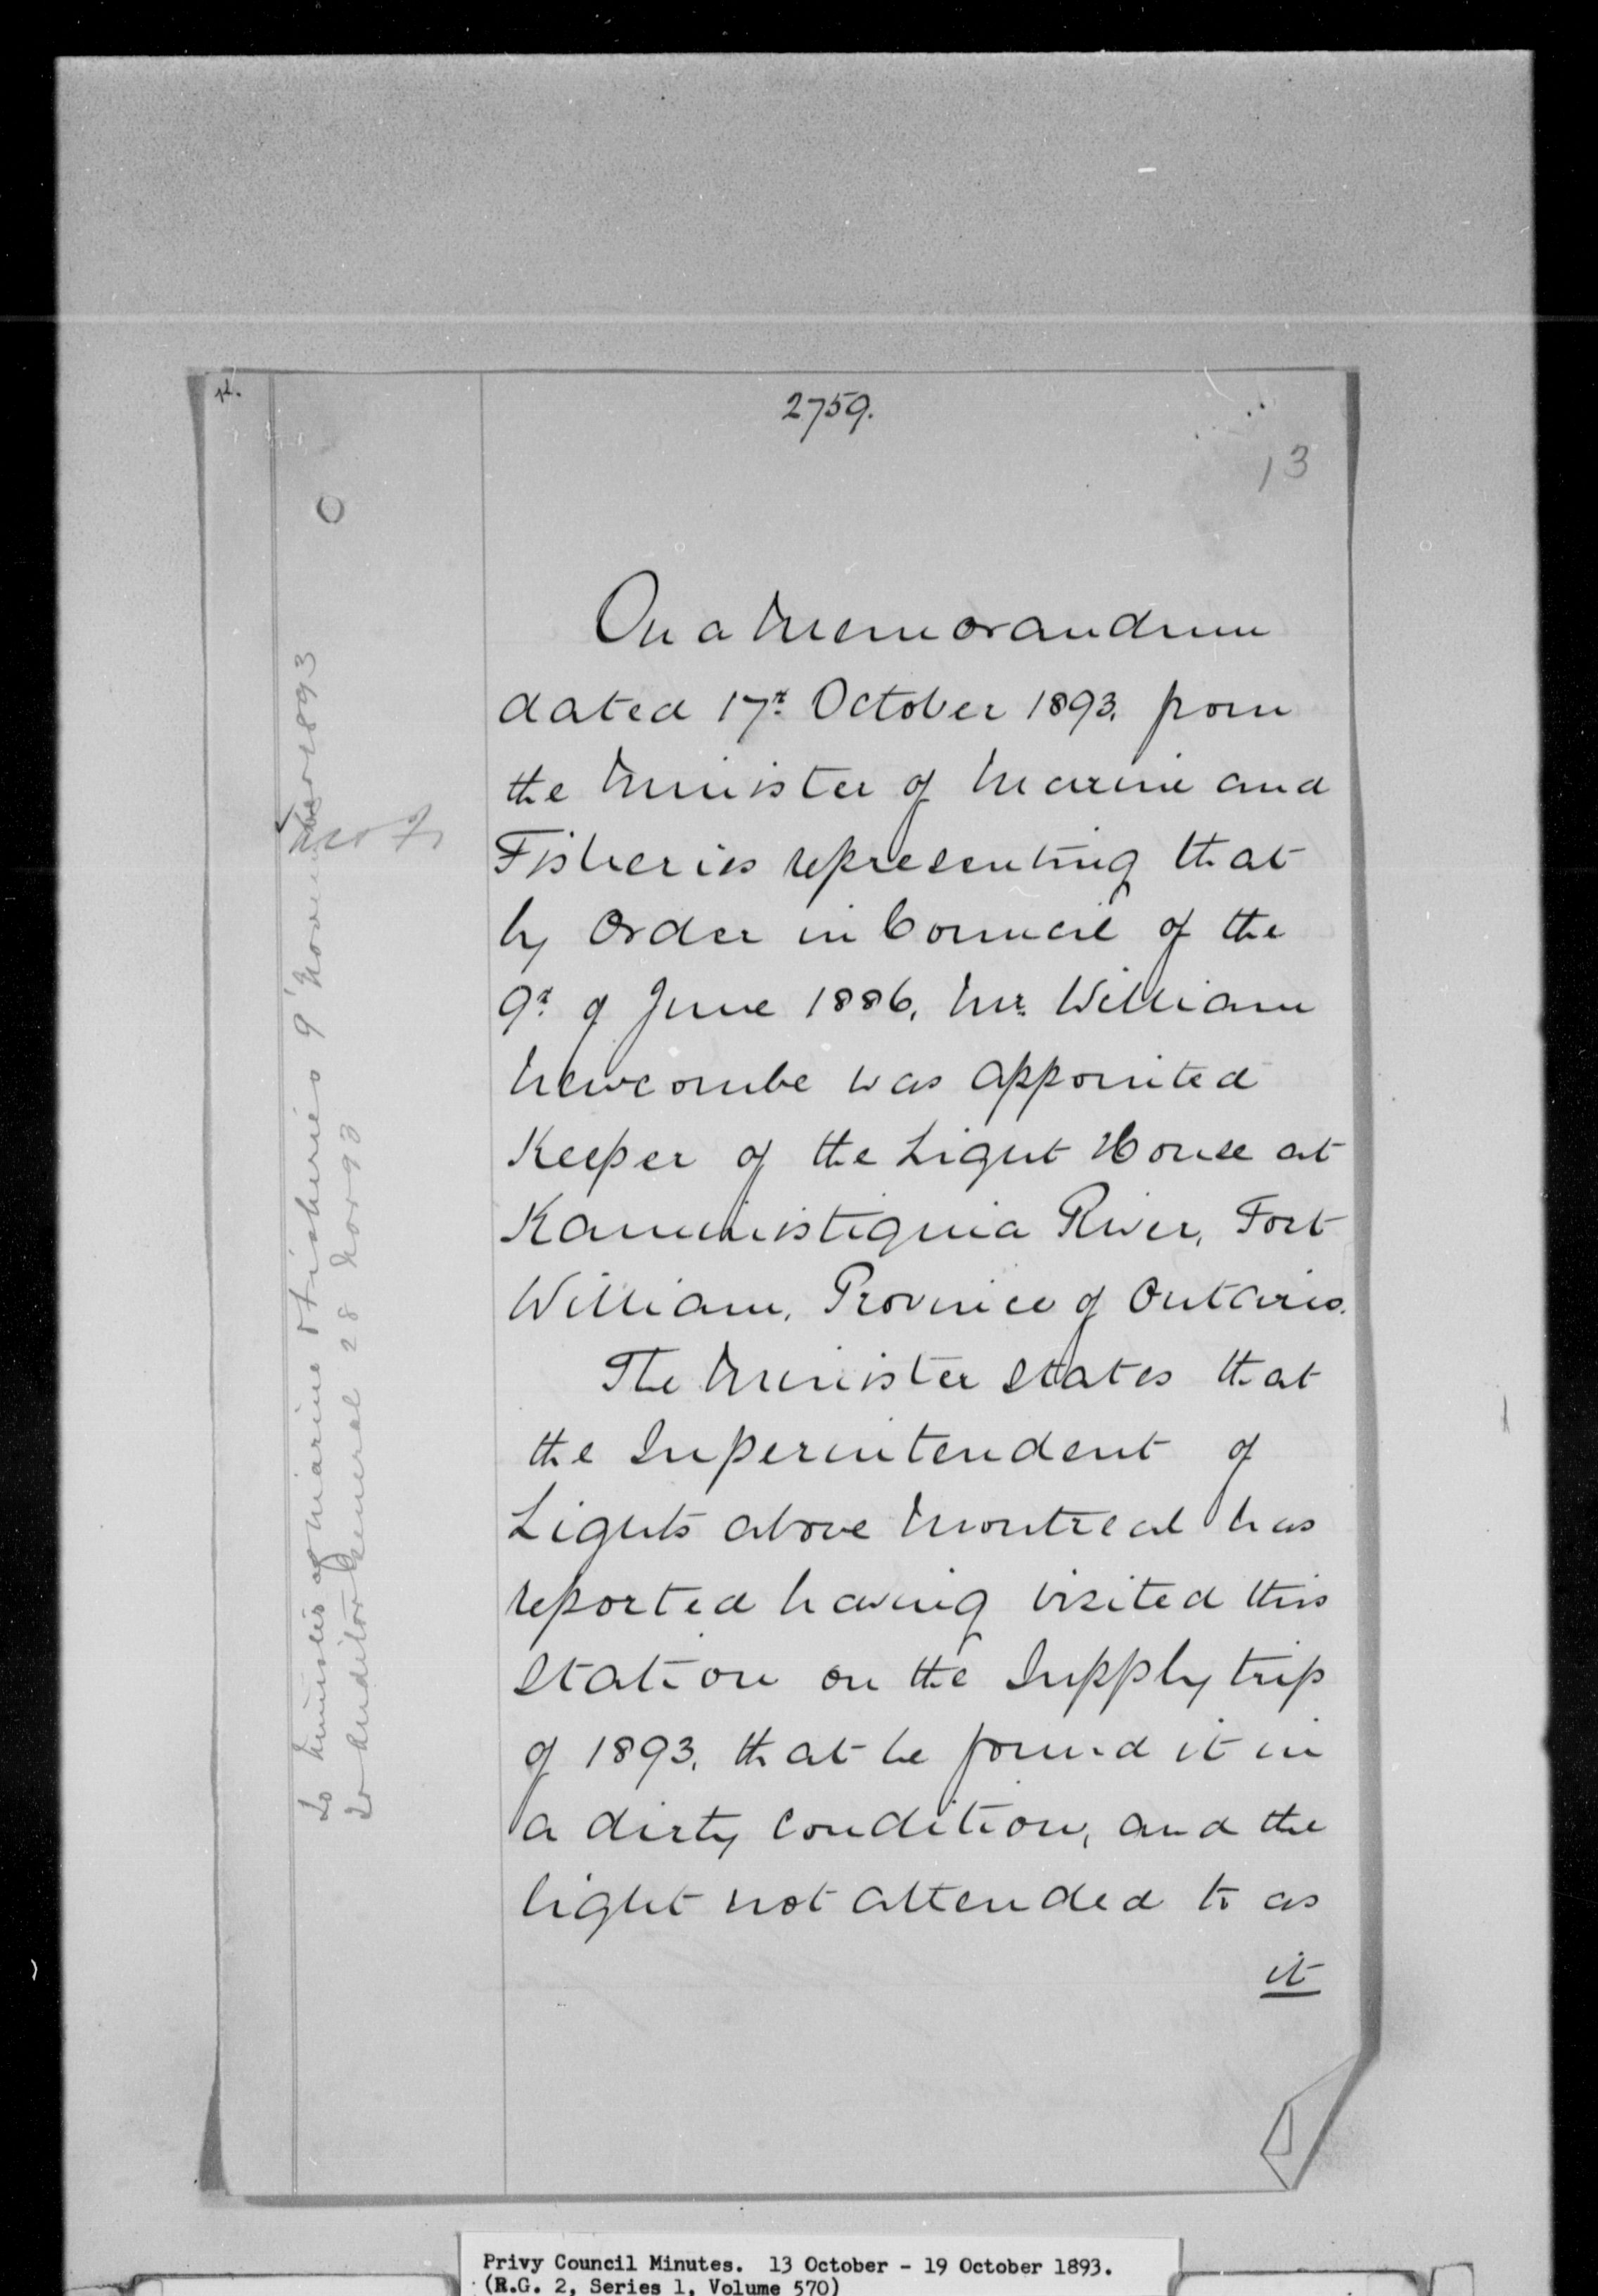 2759.
13
On a Memorandum
dated 17th October 1893. from
the Minister of Marine and
Fisheries representing that
by Order in Council of the
9th of June 1886, Mr. William
Newcombe was appointed
Keeper of the Light House at
Kaministiquia River, Fort
William, Province of Ontario.
The Minister states that
the Superintendent of
Lights above Montreal has
reported having visited this
station on the Supply trip
of 1893, that he found it in
a dirty condition, and the
light not attended to as
it
To Minister of Marine & Fisheries 9' November 1893
To Auditor General 28 Nov 93
Privy Council Minutes. 13 October - 19 October 1893.
(R.G. 2, Series 1, Volume 570)